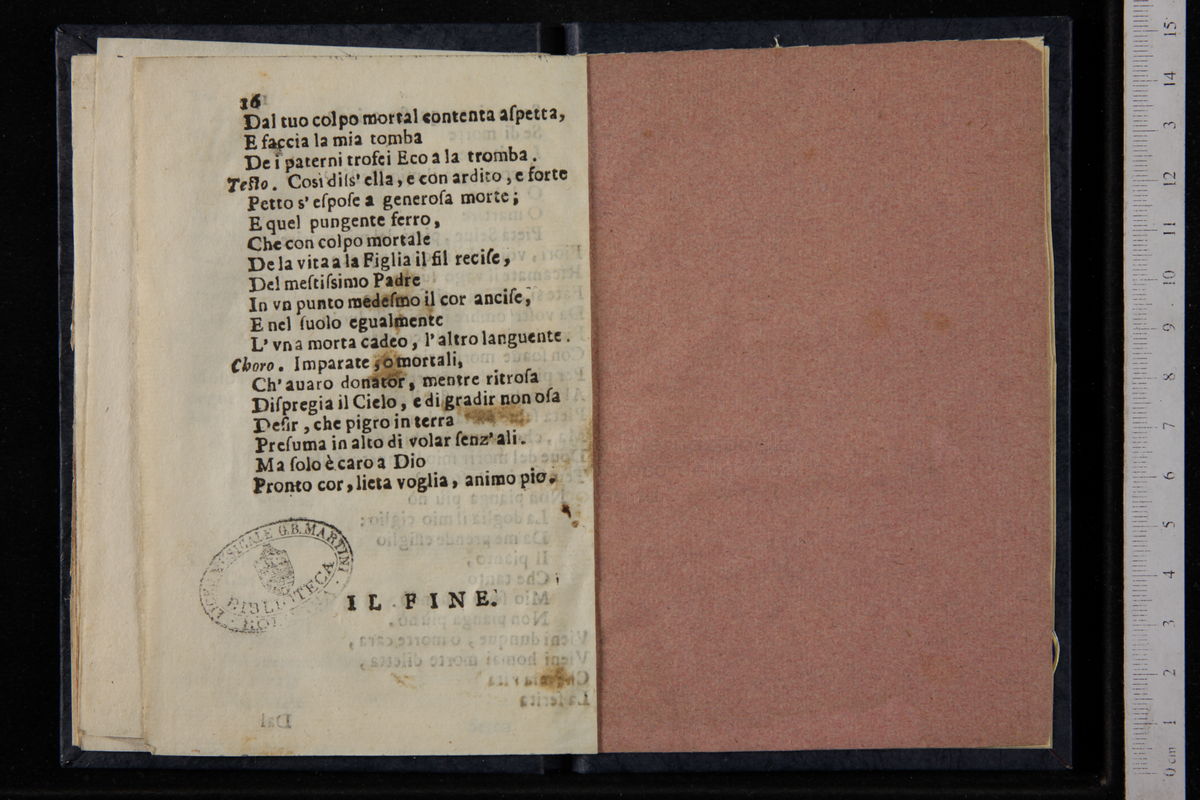 16
Dal tuo colpo mortal contenta aſpetta,
E faccia la mia tomba
De i paterni trofei Eco a la tromba.
Teſto. Così diſs' ella, e con ardito, e forte
Petto s' eſpoſe a generoſa morte;
E quel pungente ferro,
Che con colpo mortale
De la vita a la Figlia il fil reciſe,
Del meſtiſsimo Padre
In vn punto medeſmo il cor anciſe,
E nel ſuolo egualmente
L' vna morta cadeo, l'altro languente.
Choro. Imparate, o mortali,
Ch' auaro donator, mentre ritroſa
Diſpregia il Cielo, e di gradir non oſa
Deſir, che pigro in terra
Preſuma in alto di volar ſenz' ali.
Ma ſolo è caro a Dio
Pronto cor, lieta voglia, animo pio.
LICEO MUSICALE G.B. MARTINI
BIBLIOTECA
IL FINE.
15
14
3
12
11
10
9
8
7
6
5
4
3
2
1
0 cm